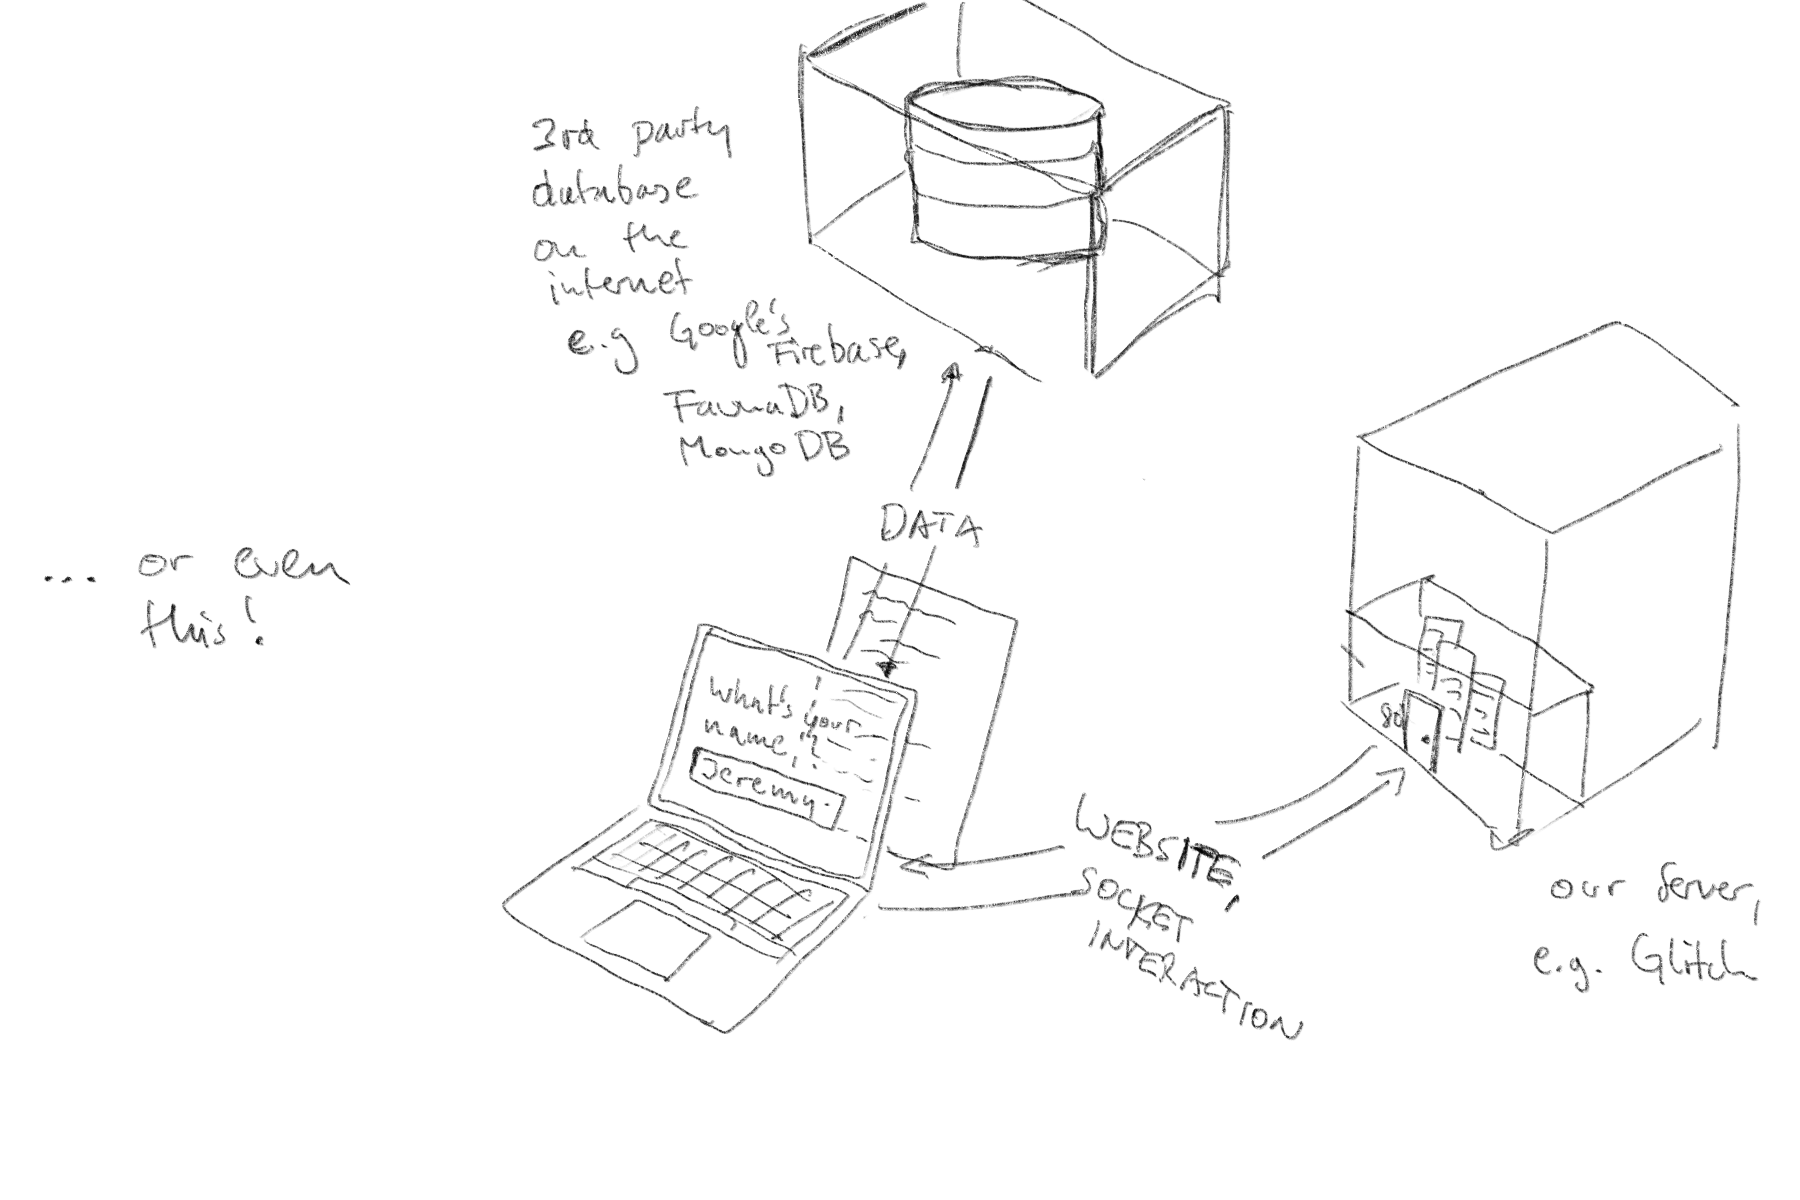 3rd party
database
on the
internet
e.g Google's
Firebase,
FaunaDB,
MongoDB
DATA
... or even
this!
What's your
name?
Jeremy.
80
WEBSITE,
SOCKET
INTERACTION
our server,
e.g. Glitch